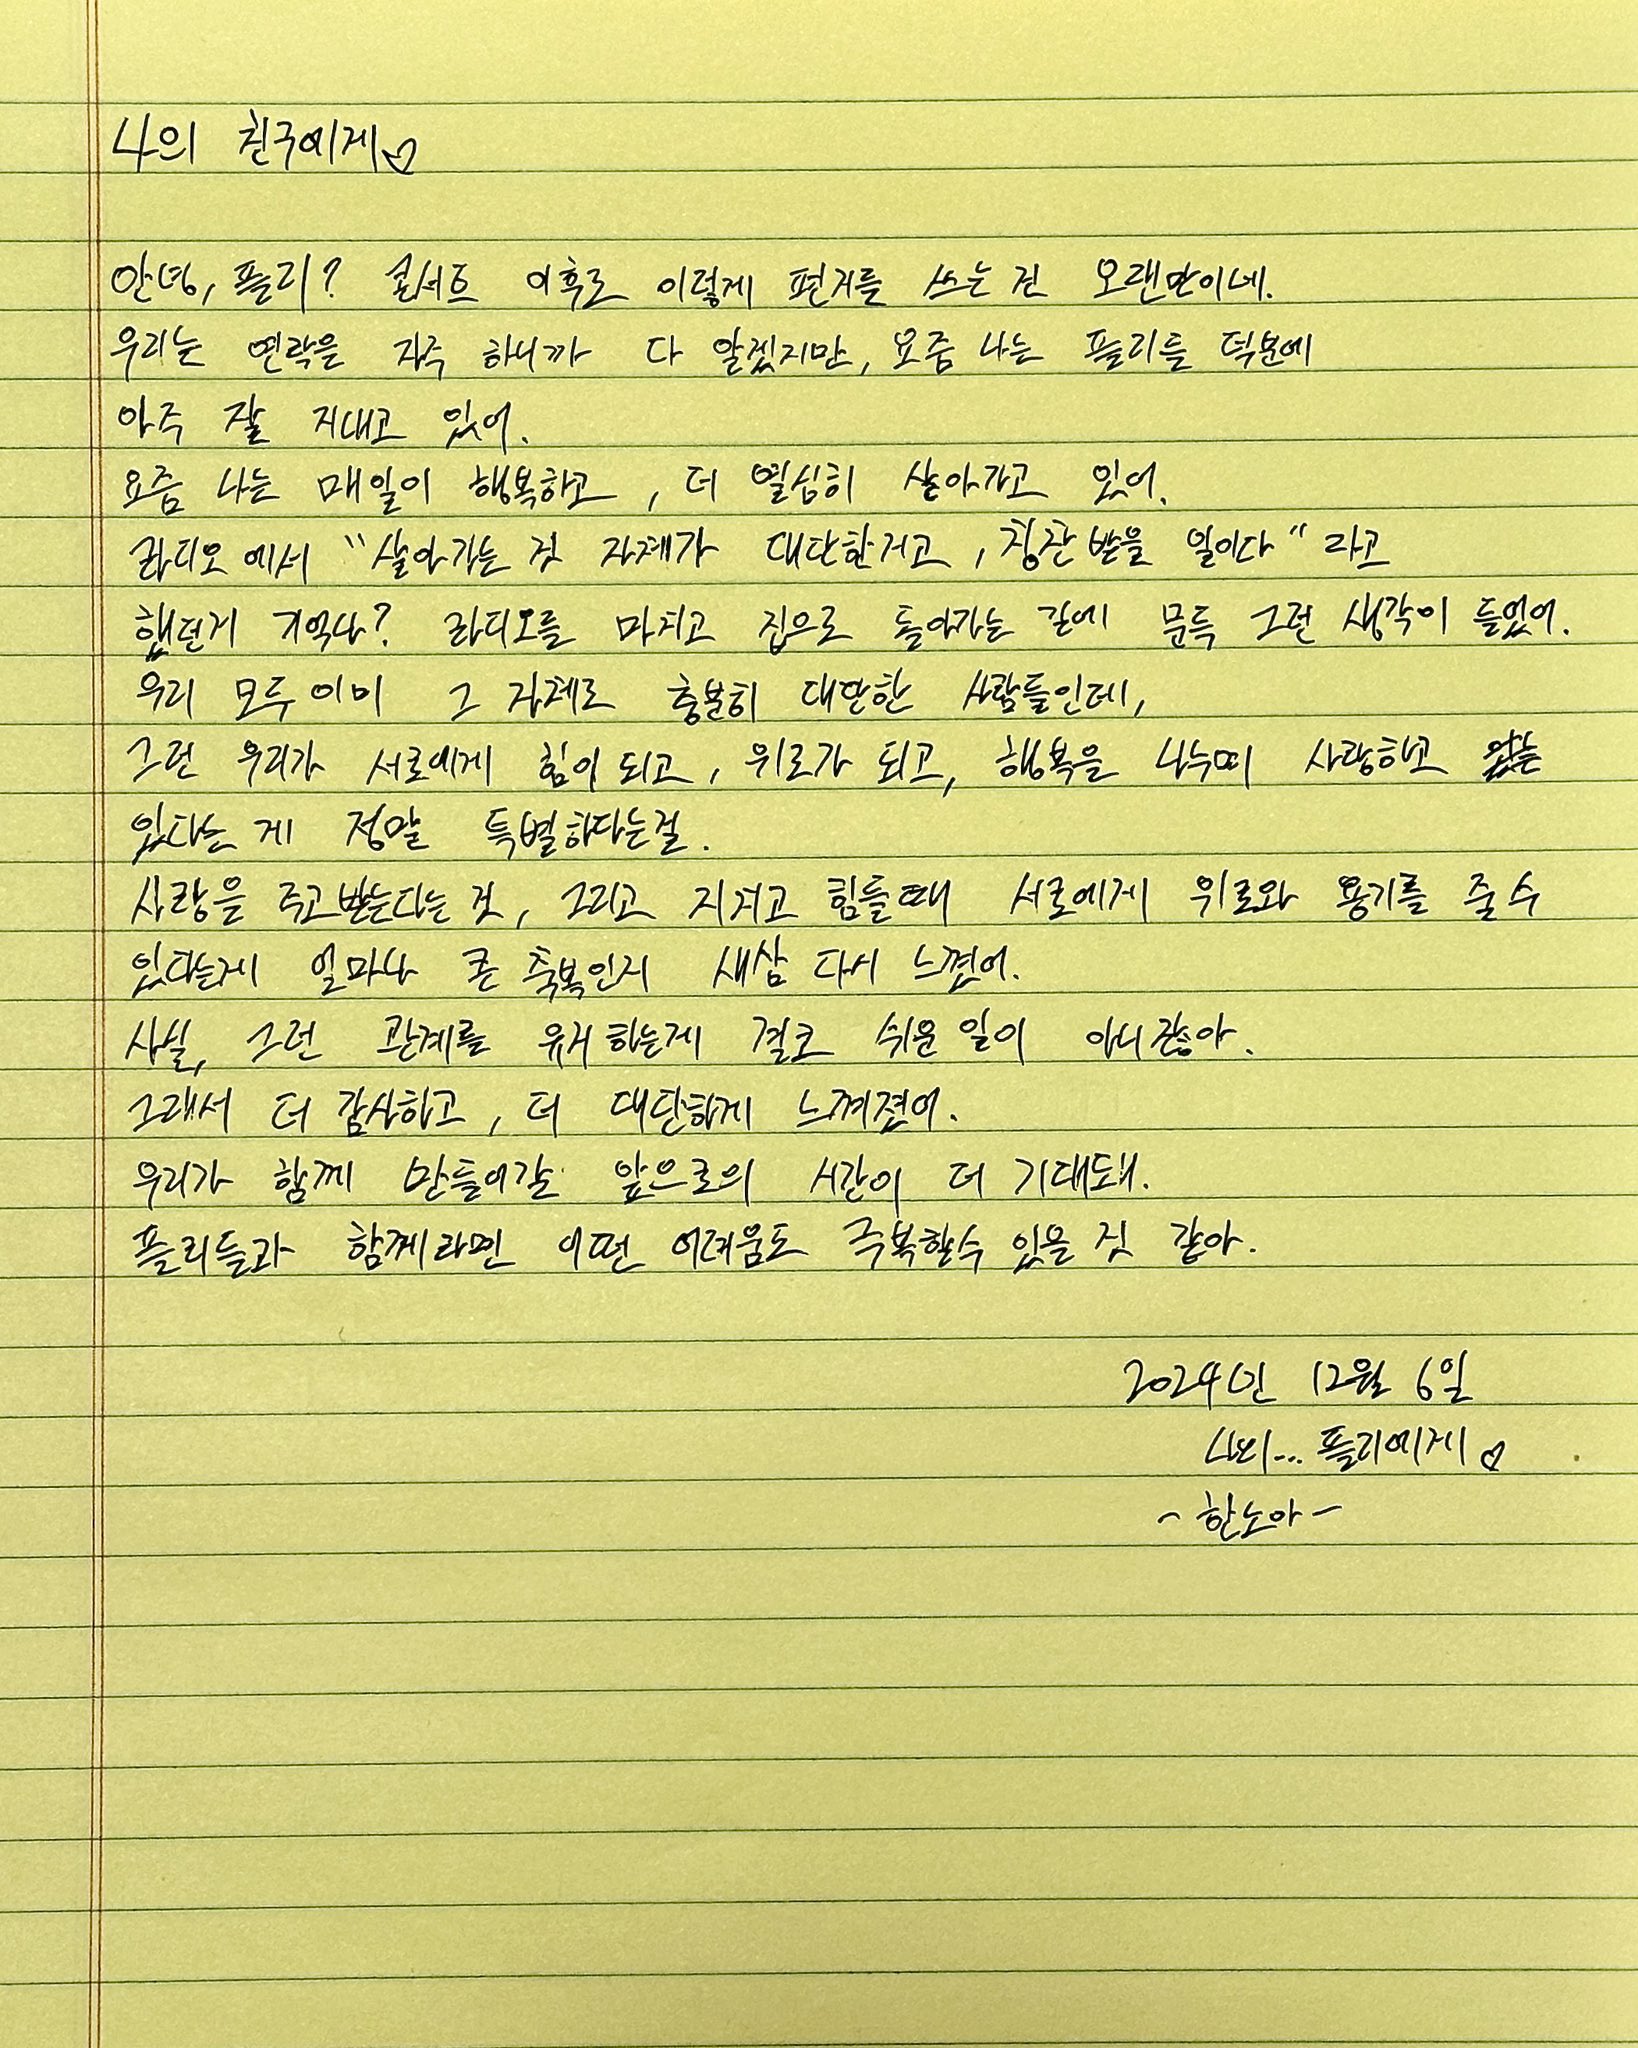 나의 친구에게♡
안녕, 플리? 콘서트 이후로 이렇게 편지를 쓰는 건 오랜만이네.
우리는 연락을 자주 하니까 다 알겠지만, 요즘 나는 플리들 덕분에
아주 잘 지내고 있어.
요즘 나는 매일이 행복하고, 더 열심히 살아가고 있어.
라디오에서 "살아가는 것 자체가 대단한거고, 칭찬받을 일이다"라고
했던거 기억나? 라디오를 마치고 집으로 돌아가는 길에 문득 그런 생각이 들었어.
우리 모두 이미 그 자체로 충분히 대단한 사람들인데,
그런 우리가 서로에게 힘이 되고, 위로가 되고, 행복을 나누며 사랑하고
있다는 게 정말 특별하다는걸.
사랑을 주고받는다는 것, 그리고 지치고 힘들때 서로에게 위로와 용기를 줄 수
있다는게 얼마나 큰 축복인지 새삼 다시 느꼈어.
사실, 그런 관계를 유지하는게 결코 쉬운 일이 아니잖아.
그래서 더 감사하고, 더 대단하게 느껴졌어.
우리가 함께 만들어갈 앞으로의 시간이 더 기대돼.
플리들과 함께라면 어떤 어려움도 극복할수 있을 것 같아.
2024년 12월 6일
나의... 플리에게♡
-한노아-